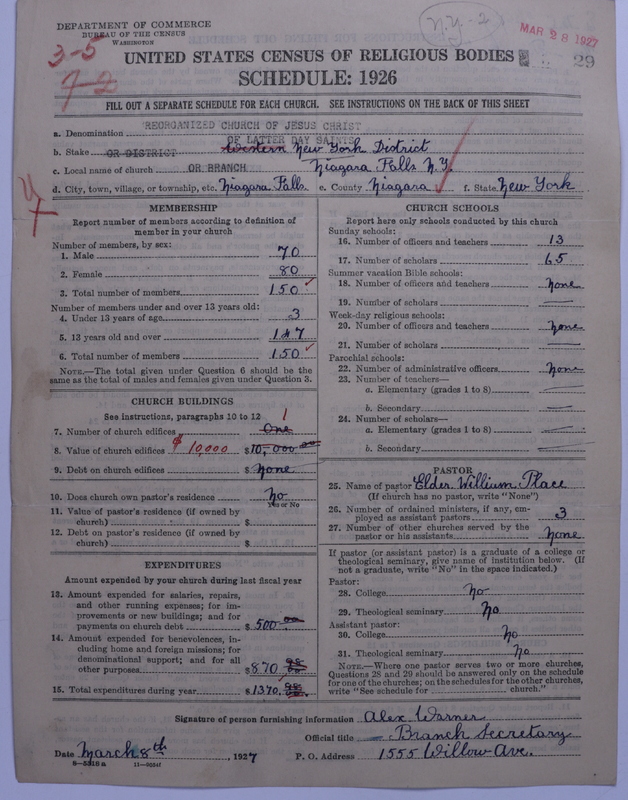 DEPARTMENT OF COMMERCE
BUREAU OF THE CENSUS
WASHINGTON
N.Y-2
MAR 28 1927
3-5
7-2
29
UNITED STATES CENSUS OF RELIGIOUS BODIES
SCHEDULE: 1926
FILL OUT A SEPARATE SCHEDULE FOR EACH CHURCH. SEE INSTRUCTIONS ON THE BACK OF THIS SHEET
a. Denomination REORGANIZED CHURCH OF JESUS CHRIST
OF LATTER DAY SAINTS
b. Stake OR DISTRICT Western New York District
c. Local name of church OR BRANCH Niagara Falls N.Y.
d. City, town, village, or township, etc. Niagara Falls e. County Niagara f. State New York
MEMBERSHIP
Report number of members according to definition of
member in your church
Number of members, by sex:
1. Male 70
2. Female 80
3. Total number of members 150
Number of members under and over 13 years old:
4. Under 13 years of age 3
5. 13 years old and over 147
6. Total number of members 150
NOTE.—The total given under Question 6 should be
same as the total of males and females given under Question 3.
CHURCH BUILDINGS
See instructions, paragraphs 10 to 12
1
7. Number of church edifices One
8. Value of church edifices $10,000 $10,000 00
9. Debt on church edifices $ None
10. Does church own pastor's residence No
Yes or No
11. Value of pastor's residence (if owned by
church) $
12. Debt on pastor's residence (if owned by
church) $
EXPENDITURES
Amount expended by your church during last fiscal year
13. Amount expended for salaries, repairs,
and other running expenses; for im-
provements or new buildings; and for
payments on church debt $ 500 00
14. Amount expended for benevolences, in-
cluding home and foreign missions; for
denominational support; and for all
other purposes $ 870
15. Total expenditures during year $ 1370
CHURCH SCHOOLS
Report here only schools conducted by this church
Sunday schools:
16. Number of officers and teachers 13
17. Number of scholars 65
Summer vacation Bible schools:
18. Number of officers and teachers None
19. Number of scholars
Week-day religious schools:
20. Number of officers and teachers None
21. Number of scholars
Parochial schools:
22. Number of administrative officers None
23. Number of teachers—
a. Elementary (grades 1 to 8)
b. Secondary
24. Number of scholars—
a. Elementary (grades 1 to 8)
b. Secondary
PASTOR
25. Name of pastor Elder William Place
(If church has no pastor, write "None")
26. Number of ordained ministers, if any, em-
ployed as assistant pastors 3
27. Number of other churches served by the
pastor or his assistants None
If pastor (or assistant pastor) is a graduate of a college or
theological seminary, give name of institution below. (If
not a graduate, write "No" in the space indicated.)
Pastor:
28. College No
29. Theological seminary No
Assistant pastor:
30. College No
31. Theological seminary No
NOTE.—Where one pastor serves two or more churches,
Questions 28 and 29 should be answered only on the schedule
for one of the churches; on the schedules for the other churches,
write "See schedule for church."
Signature of person furnishing information Alex Warner
Official title Branch Secretary
Date March 8th, 1927 P. O. Address 1555 Willow Ave.